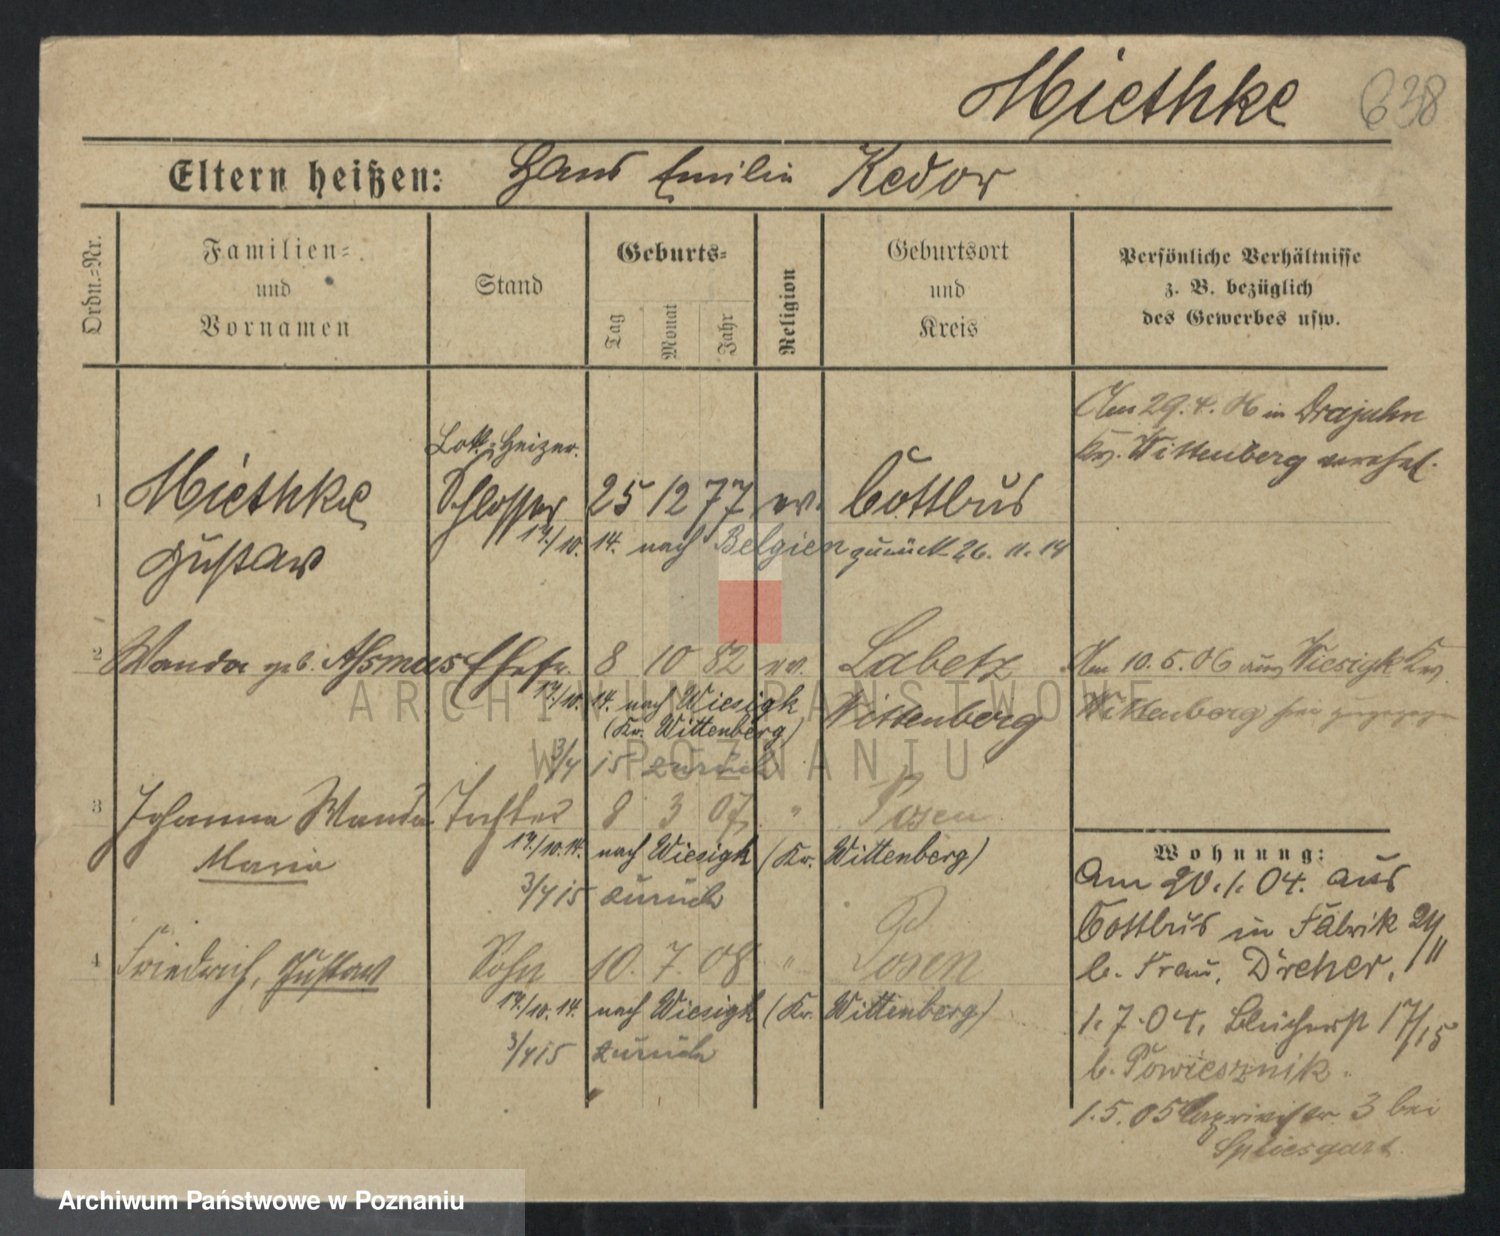 Miethke 638
Eltern heißen: Hans Emilie Kedor
Ordn.=Nr.
Familien=
und
Vornamen
Stand
Geburts=
Tag
Monat
Jahr
Religion
Geburtsort
und
Kreis
Persönliche Verhältnisse
z. B. bezüglich
des Gewerbes usw.
Am 29.4.06 in Drajuhn
Kr. Wittenberg verehel.
Lok. Heizer.
1 Miethke Schlosser 25 12 77 ev. Cottbus
Gustav
17/10. 14. nach Belgien zurück 26. 11. 14
2 Wanda geb. Assmus Ehefr. 8 10 82 ev. Labetz
Wittenberg
17/10. 14. nach Wiesigk
(Kr. Wittenberg)
3/4 15 zurück
Am 10.5.06 aus Wiesigk Kr.
Wittenberg
3 Johanna Wanda Tochter 8 3 07 " Posen
Maria
17/10.14. nach Wiesigk (Kr. Wittenberg)
3/4 15 zurück
4 Friedrich, Gustav Sohn 10. 7. 08 " Posen
17/10.14. nach Wiesigk (Kr. Wittenberg)
3/4 15 zurück
Wohnung:
Am 20.1.04. aus
Cottbus in Fabrik 24/II
b. Frau Dreher.
1.7.04. Blücherst 17/15
b. Powiesznik.
1.5.05 3 bei
ARCHIWUM PAŃSTWOWE
W POZNANIU
Archiwum Państwowe w Poznaniu